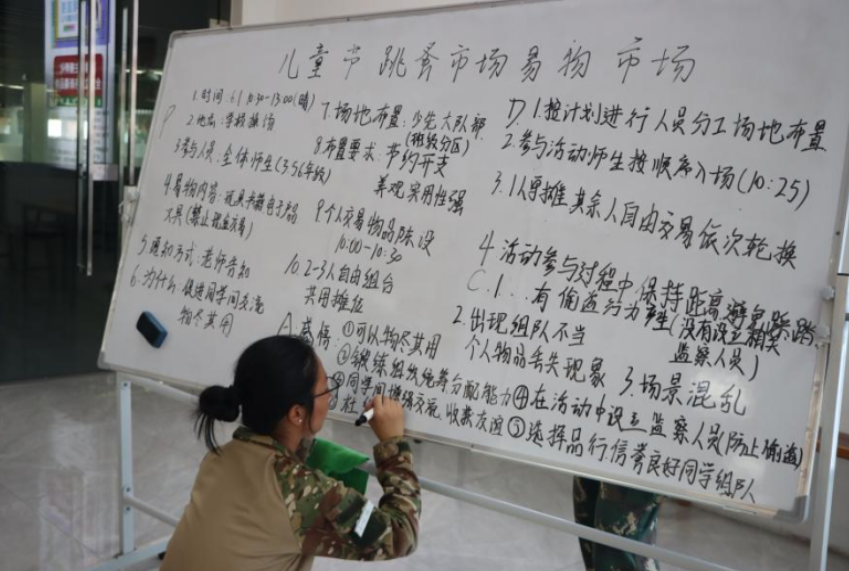 儿童节跳蚤市场易物市场
P
1.时间:6.1 10:30-13:00(晴)
2.地点:学校操场
3.参与人员:全体师生(3.5.6年级)
4.易物内容:玩具书籍电子产品
文具(禁止现金交易)
5.通知方式:老师告知
6.为什么:促进同学间交流
物尽其用
7.场地布置:少先大队部
(班级分区)
8.布置要求:节约开支
美观 实用性强
9.个人交易物品陈设
10:00-10:30
10.2-3人自由组合
共用摊位
D.1.按计划进行人员分工场地布置
2.参与活动师生按顺序入场(10:25)
3.1人守摊其余人自由交易依次轮换
4.活动参与过程中保持距离避免踩踏
C.1...有偷盗行为产生(没有设立相关
监察人员)
2.出现组队不当
个人物品丢失现象 3.场景混乱
A感悟:①可以物尽其用
②锻炼组织统筹分配能力④在活动中设立监察人员(防止偷盗)
③同学间增强交流,收获友谊⑤选择品行,信誉良好同学组队